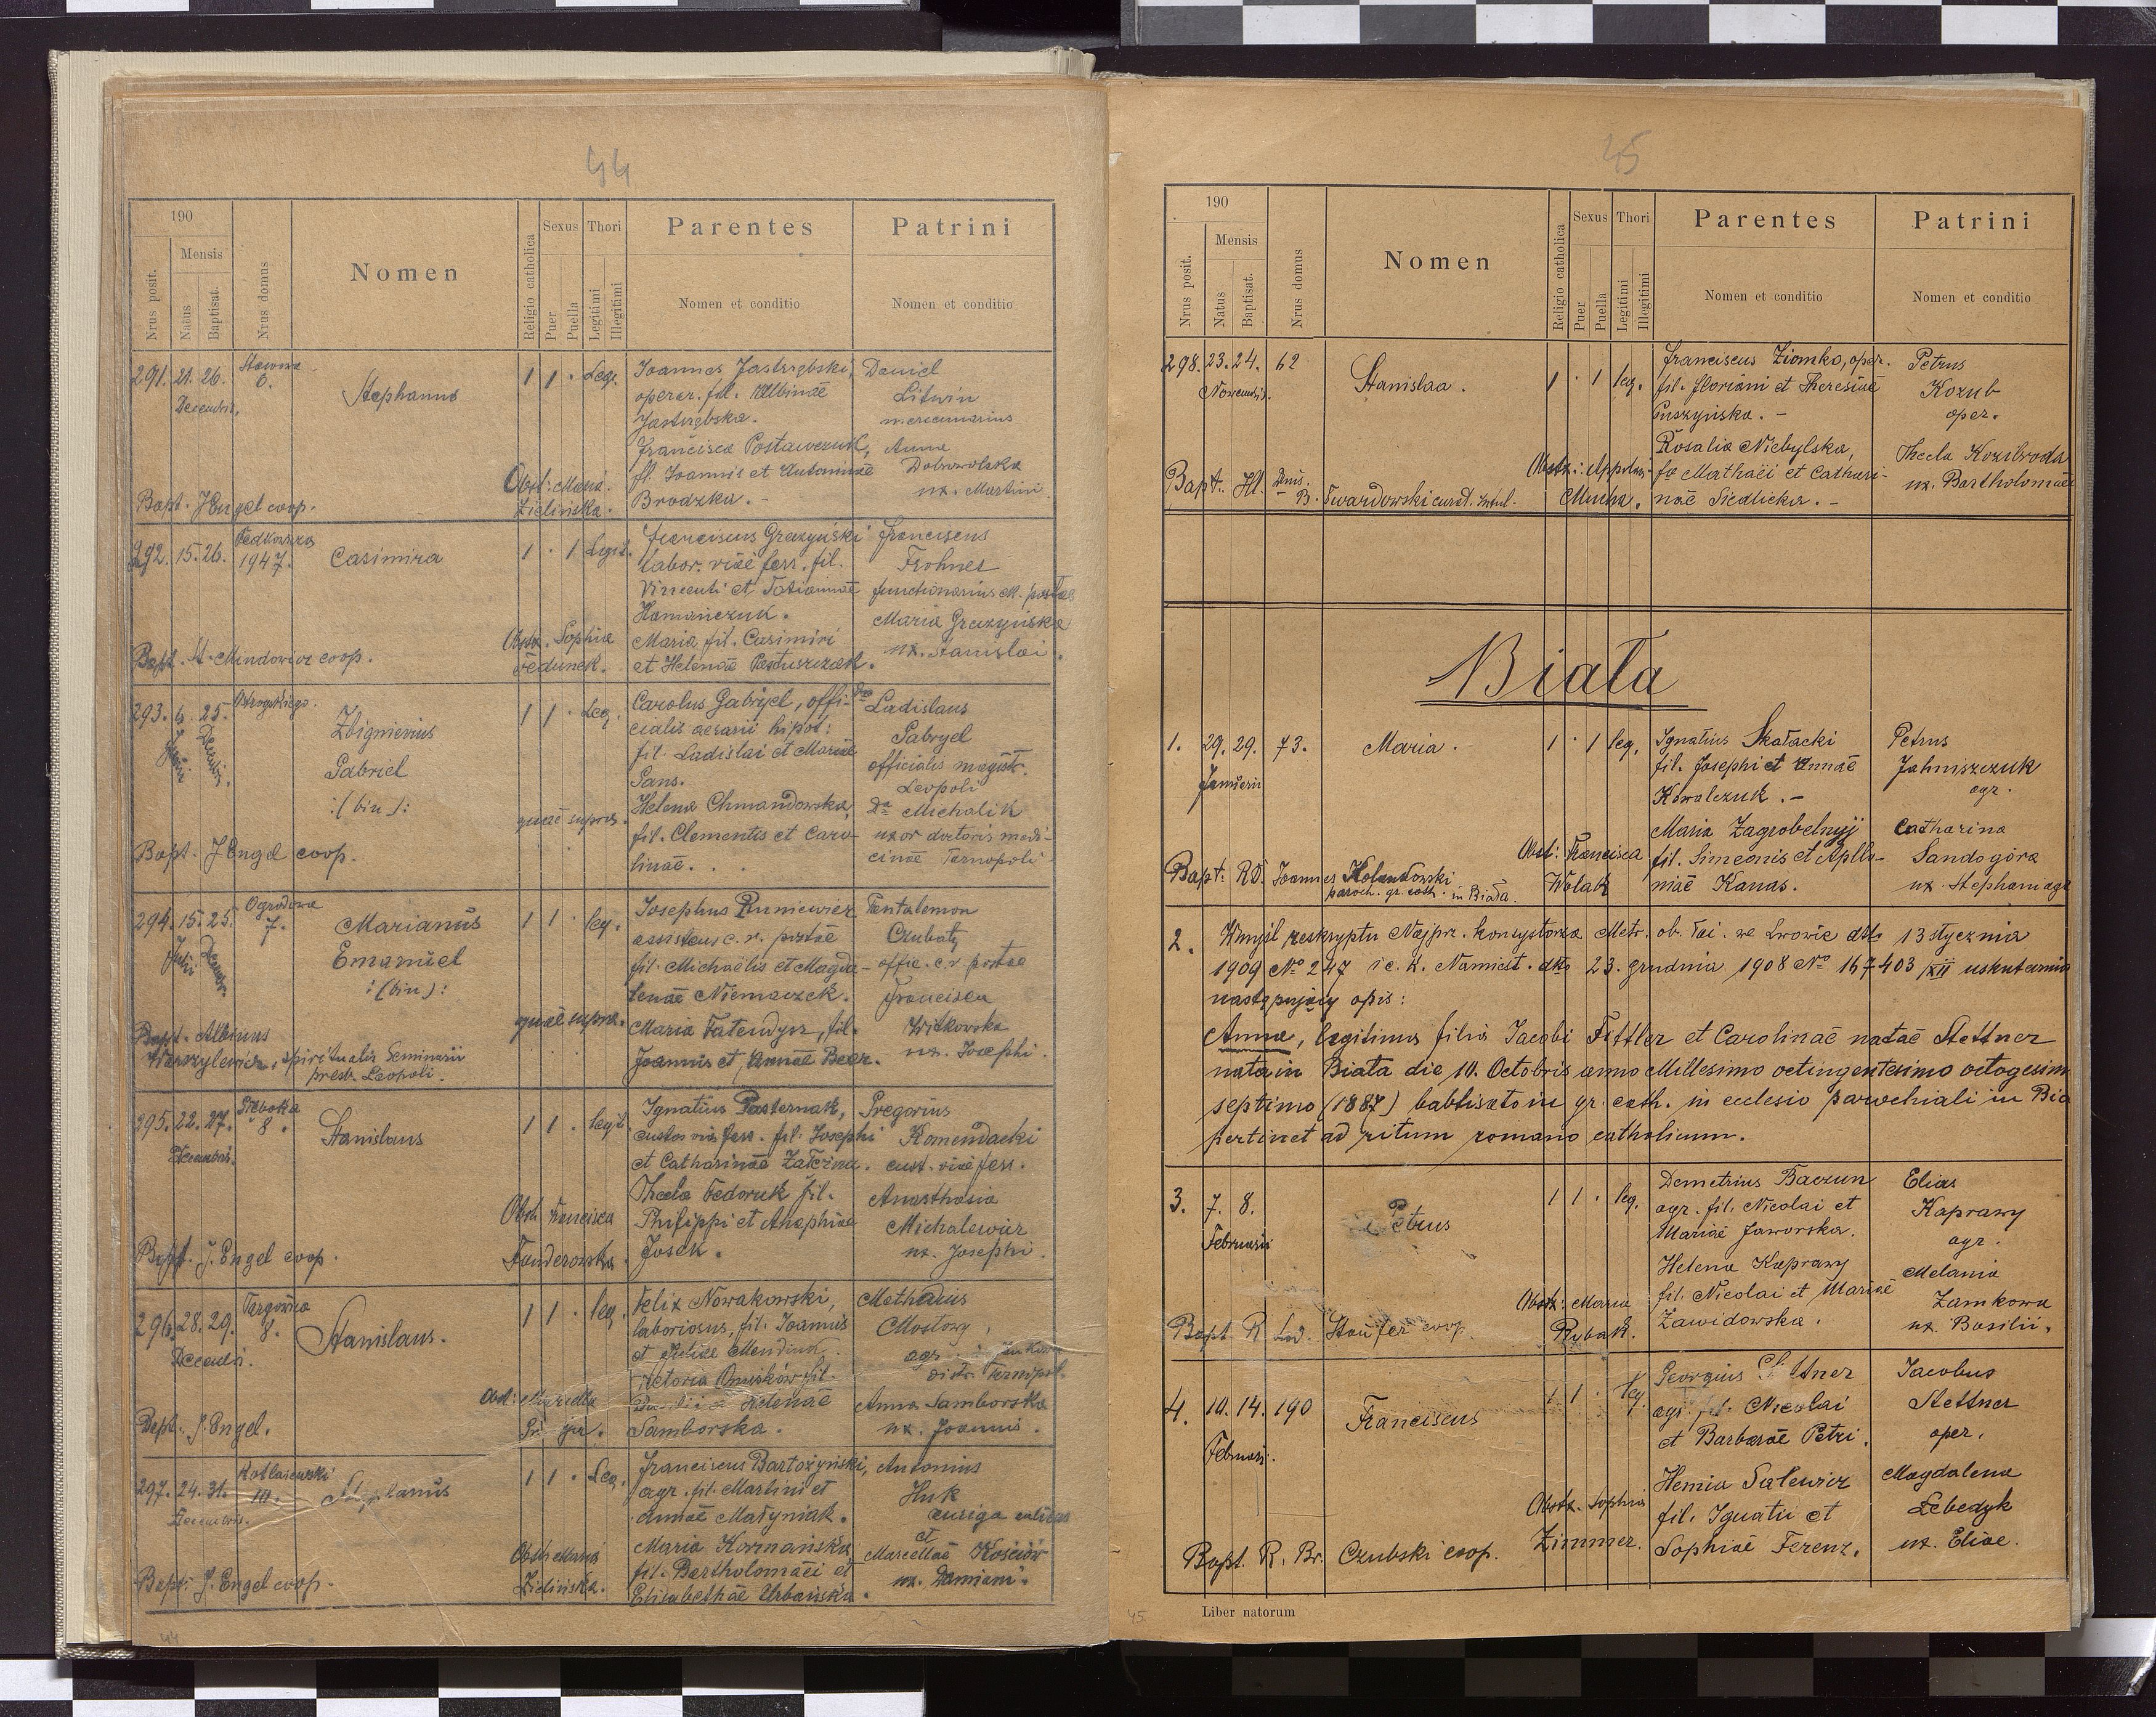 44
190
Mensis
Nrus posit.
Natus
Baptisat.
Nrus domus
Nomen
Religio catholica
Sexus
Puer
Puella
Thori
Legitimi
Illegitimi
Parentes
Nomen et conditio
Patrini
Nomen et conditio
291. 21. 26.
6.
Decembris
Stephanus
1 1 · Leg.
Joannes Jastrzębski,
operar. fil. Albinae
Jastrzębska.
Francisca Postawczuk,
fil. Joannis et Antoninae
Brodzka. -
Daniel
Litwin
mercenarius
Anna
Dobrowolska
ux. Martini
Obst: Maria
Zielińska.
Bapt. J. Engel coop.
292. 15. 26.
1947.
Casimira
1 · 1 Legit.
Franciscus Grazyński
labor. viae ferr. fil.
Vincenti et Tatiannae
Hamanczuk.
Maria fil. Casimiri
et Helenae Pastuszczak.
Franciscus
Frohner
functionarius c.r. postae
Maria Grazyńska
ux. Stanislai.
Obstx. Sophia
Fedunek.
Bapt. A. Mindowicz coop.
293. 6. 25.
Ostrogskiego.
Junii Decembr.
Zbignievius
Gabriel
:(bin):
1 1 · Leg.
Carolus Gabryel, offi-
cialis aerarii hipot:
fil. Ladislai et Mariae
Sans.
Helena Chmandowska,
fil. Clementis et Caro-
linae. . .
Ladislaus
Gabryel
officialis magistr.
Leopoli
Da Michalik
uxor doctoris medi-
cinae Tarnopoli
quae supra.
Bapt. J Engel coop.
294. 15. 25.
Ogrodowa
7.
Julii Decembr.
Marianus
Emanuel
:(bin):
1 1 · leg.
Josephus Runiewicz
assistens c. r. postae
fil. Michaëlis et Magda-
lenae Niemaczek.
Maria Tatendysz, fil.
Joannis et Annae Beer.
Pantalemon
Czubaty
offic. c.r postae
Francisca
Witkowska
ux. Josephi.
quae supra.
Bapt. Albinus
Warszylewicz, spiritualis Seminarii
presb. Leopoli.
295. 22. 27.
8.
Decembris.
Stanislaus
1 1 · legit.
Ignatius Pasternak,
custos viae ferr. fil. Josephi
et Catharinae Zaleczna.
Thecla Fedoruk fil.
Philippi et Anaphiae
Josek.
Gregorius
Komendacki
cust. viae ferr.
Anasthasia
Michalewicz
ux. Josephi.
Obstx Francisca
Fanderowska.
Bapt. J. Engel coop.
296. 28. 29.
Targowica
8.
Decembr.
Stanislaus.
1 1 · leg.
Felix Nowakowski,
laboriosus, fil. Joannis
et Juliae Mendiuk.
Victoria Oniśków fil.
Helenae
Samborska.
Mathaeus
Mostowy,
agr.
distr. Tarnopol.
Anna Samborska
ux. Joannis.
Bapt. J. Engel.
297. 24. 31.
10.
Decembris.
Stephanus
1 1 · Leg.
Franciscus Bartożyński,
agr. fil. Martini et
Annae Matyniak.
Maria Kormańska
fil. Bartholomaei et
Elisabethae Urbańska.
Antonius
Huk
auriga
et
Marcellae Kościów
ux. Damiani.
Obstx Maria
Zielińska.
Bapt: J. Engel coop.
44
45
190
Mensis
Nrus posit.
Natus
Baptisat.
Nrus domus
Nomen
Religio catholica
Sexus
Puer
Puella
Thori
Legitimi
Illegitimi
Parentes
Nomen et conditio
Patrini
Nomen et conditio
298. 23. 24. 62
Novembris.
Stanislaa.
1 · 1 leg.
Franciscus Ziomko, oper.
fil. Floriani et Theresiae
Puszyńska. -
Rosalia Niebylska,
fa Mathaei et Cathari-
nae Siedlicka. -
Petrus
Kozub
oper.
Thecla Kozibroda
ux. Bartholomaei
Mucha.
Bapt. Twardowski
Biała
1. 29. 29. 73.
Januarii
Maria.
1 · 1 leg.
Ignatius Skatacki
fil. Josephi et Annae
Kowalczuk. -
Maria Zagrobelnyj
fil. Simeonis et Apllo-
niae Kanas.
Petrus
Jahniszczuk
agr.
Catharina
Sandogóra
ux. Stephani agr
Obst: Francisca
Wolak
Bapt: RD. Joannes Kolankowski
paroch. gr. cath. in Biała.
2. Wmyśl reskryptu Najprz. konsystorza Metr. ob. łac. we Lwowie dto 13 stycznia
1909 No 247 i c. k. Namiest. dto 23. grudnia 1908 No 167403/XII uskutecznia
następujący opis:
Anna, legitima filia Iacobi Fittler et Carolinae natae Stettner
nata in Biała die 10. Octobris anno Millesimo octingentesimo octogesim
septimo (1887) babtisato in gr. cath. in ecclesio parochiali in Bia
pertinet ad ritum romano catholicum.
3. 7. 8.
Februarii
Petrus
1 1 · leg.
Demetrius Baczun
agr. fil. Nicolai et
Mariae Jaworska.
Helena Kaprawy
fil. Nicolai et Mariae
Zawidowska.
Elias
Kaprawy
agr.
Melania
Zamkowa
ux. Basilii.
Obstx: Maria
Rybak.
Bapt. R Lud. Staufer coop.
4. 10. 14. 190
Februari.
Franciscus
1 1 · leg
Georgius
agr. fil. Nicolai
et Barbarae Petri.
Hemia Salewicz
fil. Ignatii et
Sophiae Ferenz.
Iacobus
Stettner
oper.
Magdalena
Lebedyk
ux. Eliae.
Obstx. Sophia
Zimmer.
Bapt. R. Br. Czubski coop.
45
Liber natorum